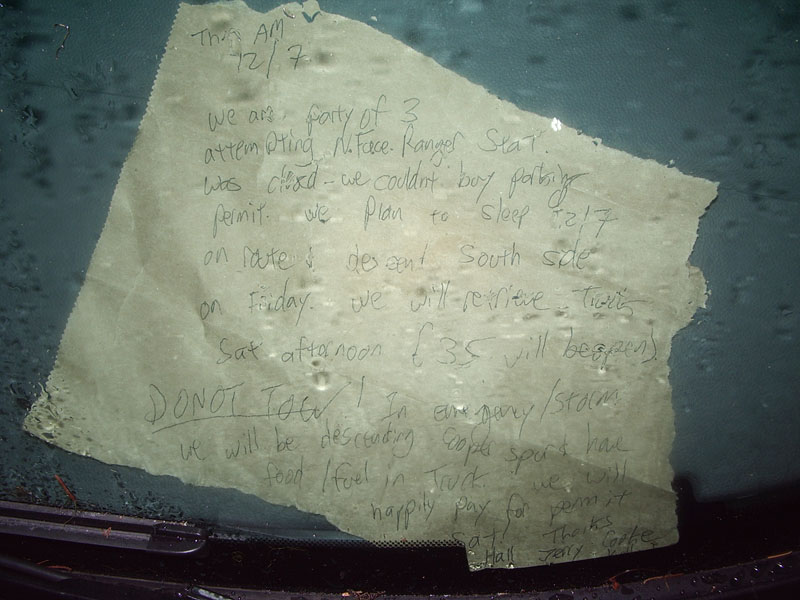 This AM
12/7
we are party of 3
attempting N. Face. Ranger Stat.
was closed - we couldn't buy parking
permit. we plan to sleep 12/7
on route & descent South side
on Friday. we will retrieve Truck
Sat afternoon (35 will be open).
DO NOT TOW! In emergency/storm
we will be descending Cooper Spur & have
food/fuel in Truck. we will
happily pay for permit
Sat! Thanks
Hall Jerry Cooke